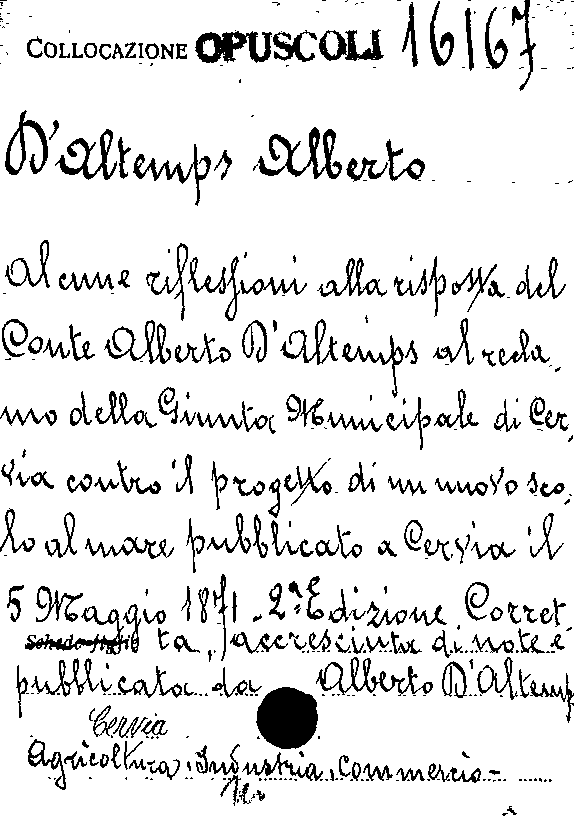 COLLOCAZIONE OPUSCOLI 16167
D'Altemps Alberto
Alcune riflessioni alla risposta del
Conte Alberto D'Altemps al recla
mo della Giunta Municipale di Cer,
via contro il progetto di un nuovo sco,
lo al mare pubblicato a Cervia il
5 Maggio 1871 - 2ª Edizione Corret,
ta, accresciuta di note e
pubblicata da Alberto D'Altemp
Cervia
Agricoltura, Industria, Commercio -